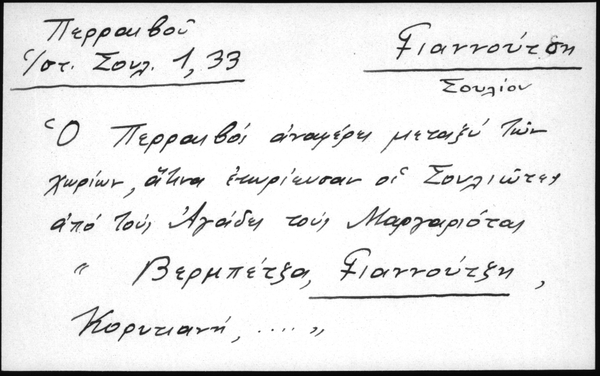 Περραιβοῦ
Ἱστ. Σουλ. 1, 33
Γιαννούτση
Σουλίου
Ὁ Περραιβός ἀναφέρει μεταξύ τῶν
χωρίων, ἅτινα ἐκυρίευσαν οἱ Σουλιῶτες
ἀπό τούς Ἀγάδες τούς Μαργαριότας
" Βερμπέτζα, Γιαννούτζη,
Κορυτιανή, .... "